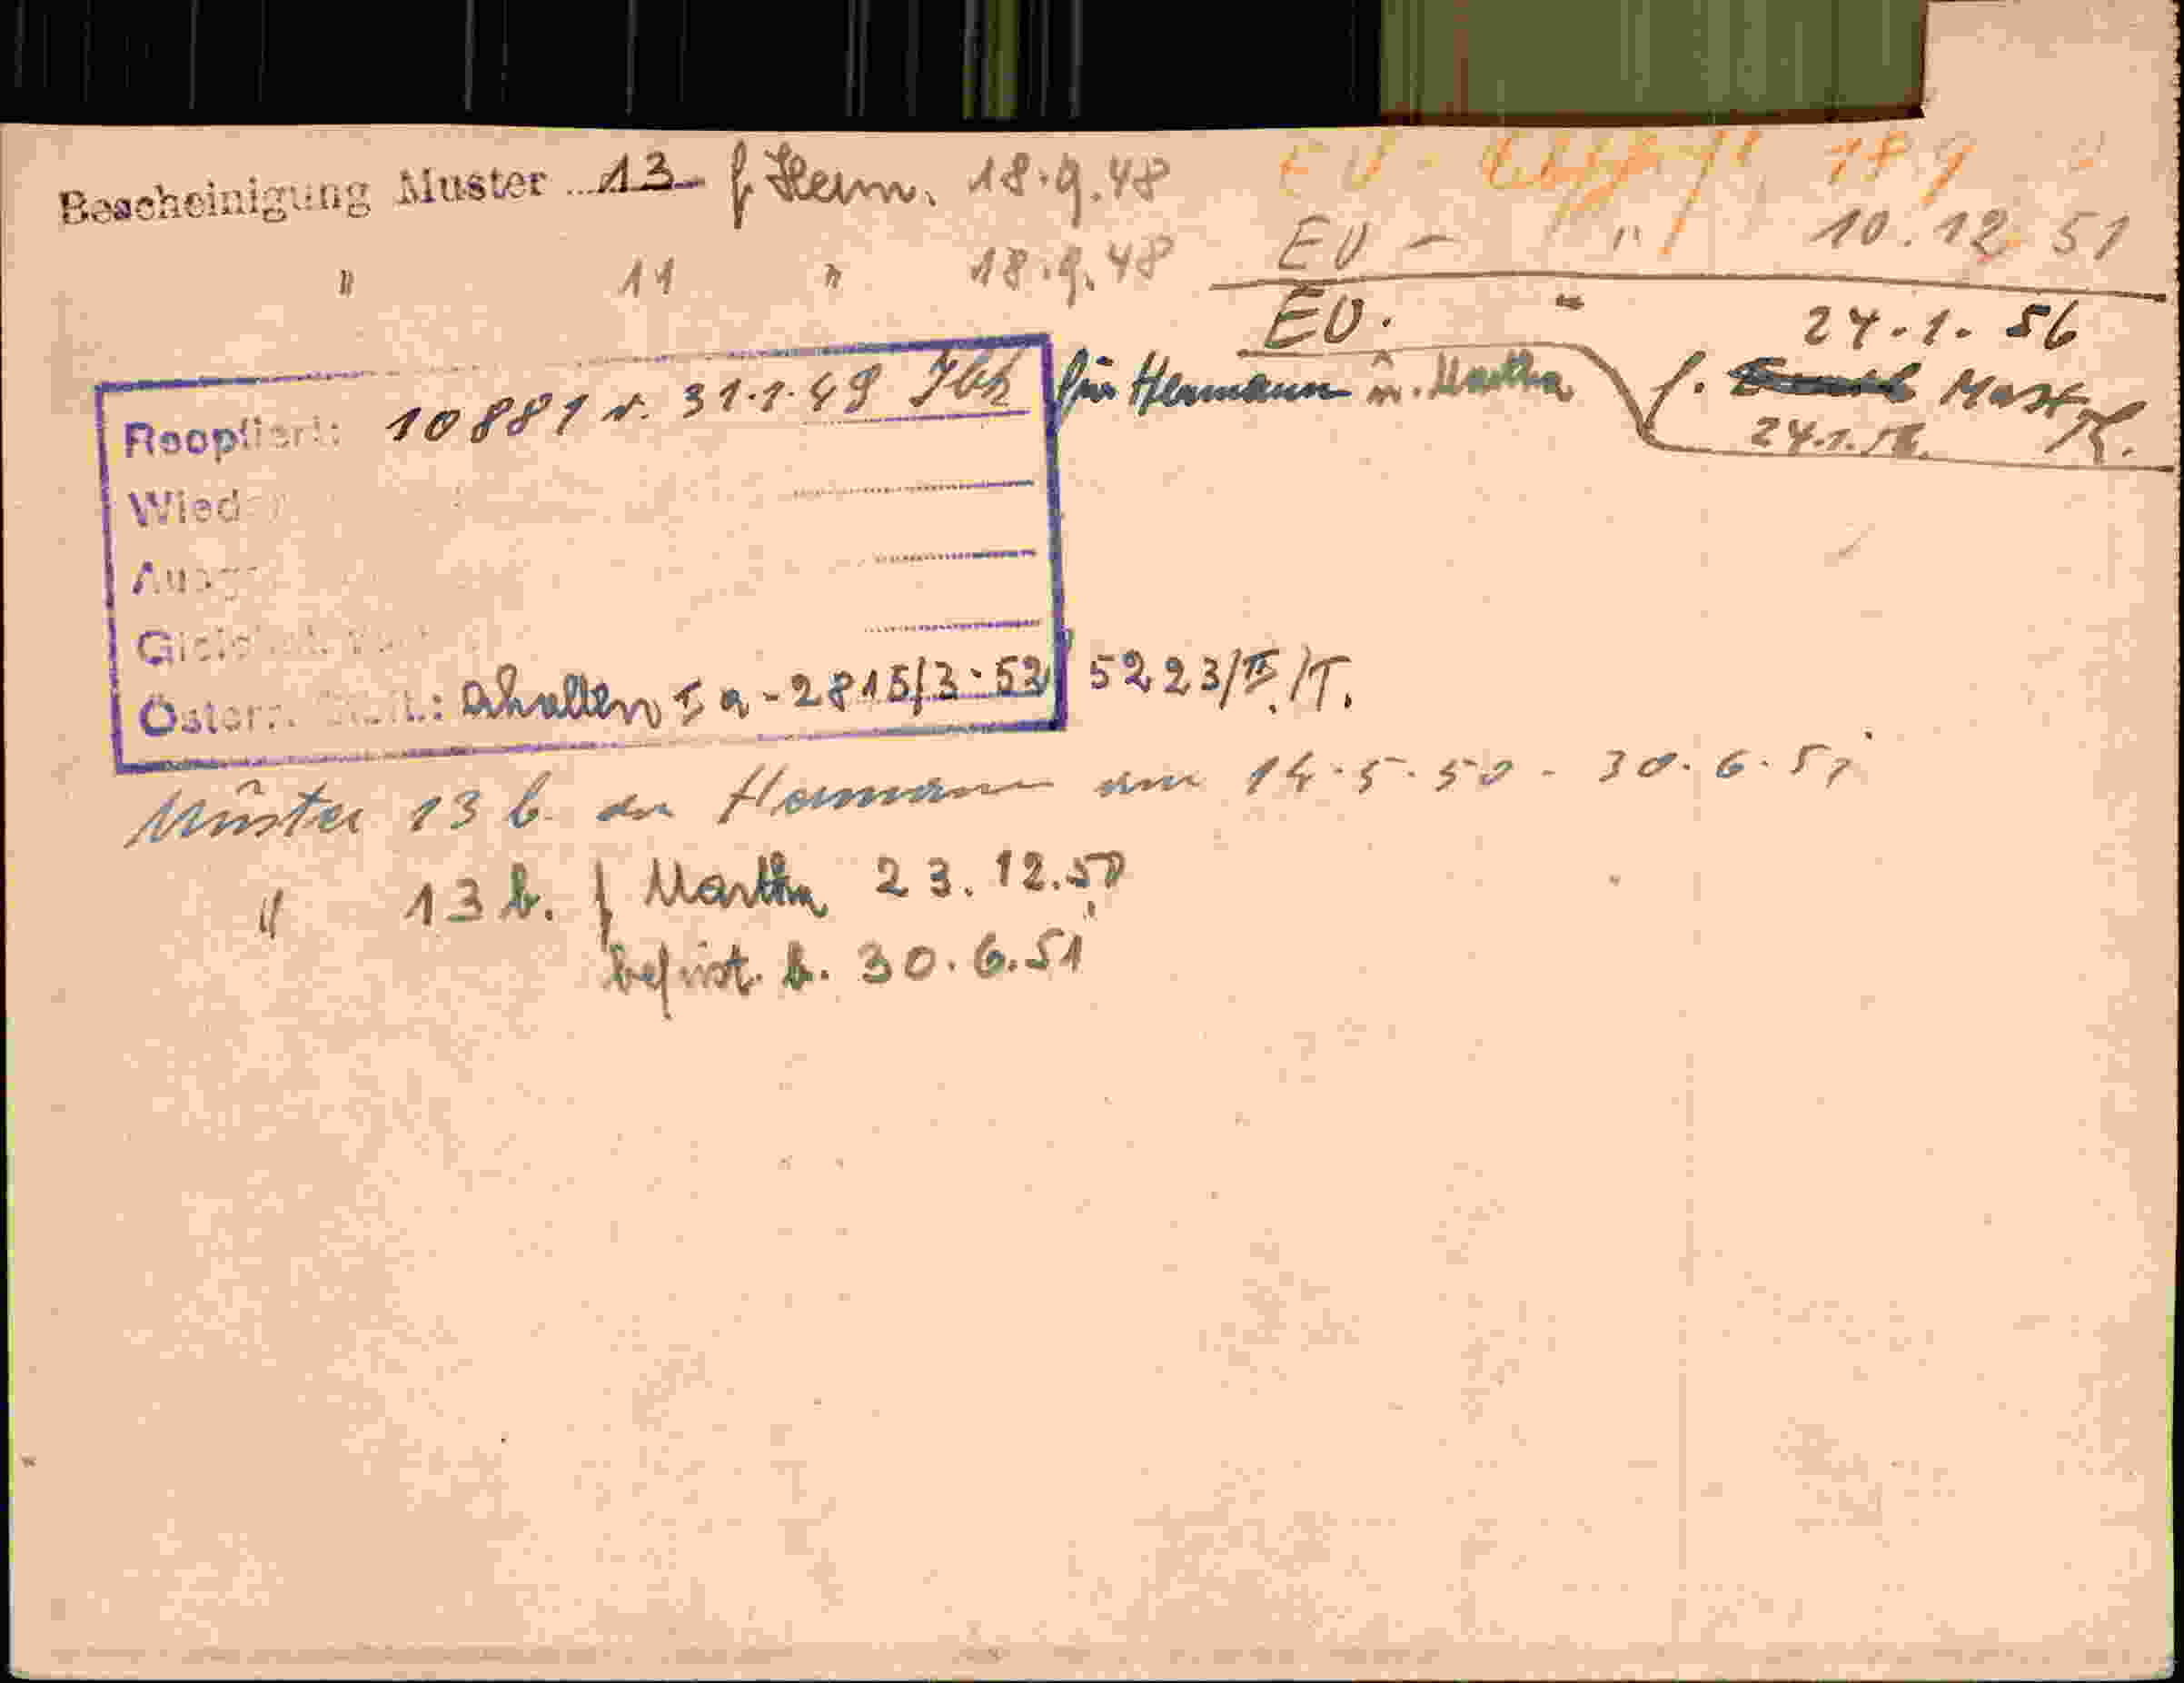 Bescheinigung Muster 13 f Herm. 18.9.48
" 11 " 18.9.48
EV - 18.9
EV - " 10.12.51
EV. " 24.1.56
Reoptiert: 10881 v. 31.1.49 Jbk für Hermann u. Martha
f. Mart
24.1.56
Wied
Ausg
Gleich
Österr. : erhalten Ia-2815/3-52/5223/II/T.
Muster 13 b. an Hermann am 14.5.50 - 30.6.51
" 13 b. f Martha 23.12.50
befrist. b. 30.6.51